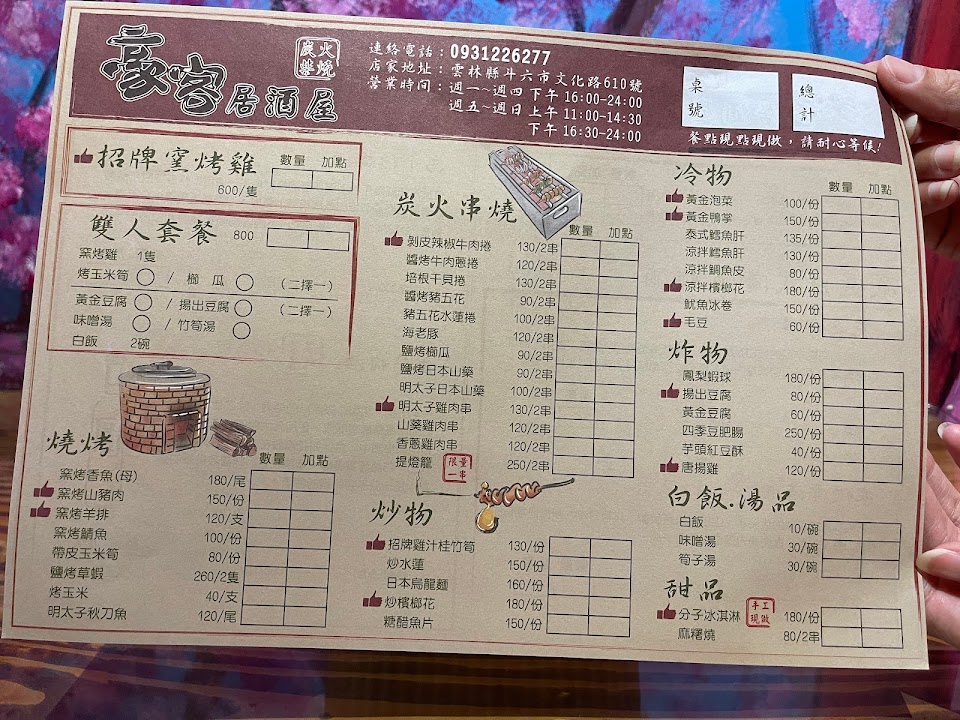 豪客居酒屋
炭火
串燒
連絡電話：0931226277
店家地址：雲林縣斗六市文化路610號
營業時間：週一~週四下午16:00-24:00
週五~週日上午11:00-14:30
下午16:30-24:00
桌號
總計
餐點現點現做，請耐心等候!
招牌窯烤雞 數量 加點
600/隻
雙人套餐 800
窯烤雞 1隻
烤玉米筍 / 櫛瓜 (二擇一)
黃金豆腐 / 揚出豆腐 (二擇一)
味噌湯 / 竹筍湯
白飯 2碗
燒烤 數量 加點
窯烤香魚(母) 180/尾
窯烤山豬肉 150/份
窯烤羊排 120/支
窯烤鯖魚 100/份
帶皮玉米筍 80/份
鹽烤草蝦 260/2隻
烤玉米 40/支
明太子秋刀魚 120/尾
炭火串燒 數量 加點
剝皮辣椒牛肉捲 130/2串
醬烤牛肉蔥捲 120/2串
培根干貝捲 130/2串
醬烤豬五花 90/2串
豬五花水蓮捲 100/2串
海老豚 120/2串
鹽烤櫛瓜 90/2串
鹽烤日本山藥 90/2串
明太子日本山藥 100/2串
明太子雞肉串 130/2串
山葵雞肉串 120/2串
香蔥雞肉串 120/2串
提燈籠 限量一串 250/2串
炒物
招牌雞汁桂竹筍 130/份
炒水蓮 150/份
日本烏龍麵 160/份
炒檳榔花 180/份
糖醋魚片 150/份
冷物 數量 加點
黃金泡菜 100/份
黃金鴨掌 150/份
泰式鱈魚肝 135/份
涼拌鱈魚肝 130/份
涼拌鯛魚皮 80/份
涼拌檳榔花 180/份
魷魚冰卷 150/份
毛豆 60/份
炸物
鳳梨蝦球 180/份
揚出豆腐 80/份
黃金豆腐 60/份
四季豆肥腸 250/份
芋頭紅豆酥 40/份
唐揚雞 120/份
白飯.湯品
白飯 10/碗
味噌湯 30/碗
筍子湯 30/碗
甜品
分子冰淇淋 手工現做 180/份
麻糬燒 80/2串